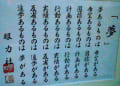 「夢」
夢あるものは希望がある
希望あるものは目標がある
目標あるものは計画がある
計画あるものは行動がある
行動あるものは実績がある
実績あるものは反省がある
反省あるものは進歩がある
進歩あるものは夢がある
眼力社